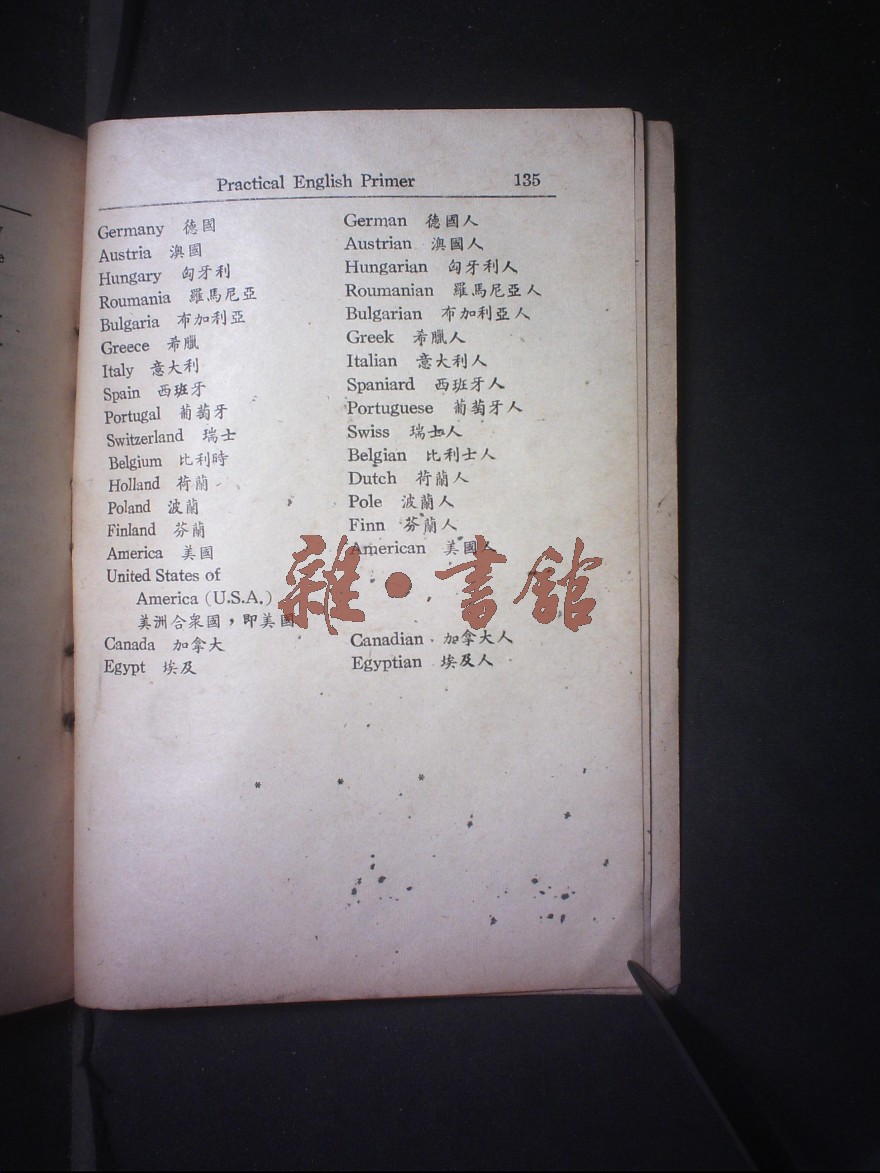 Practical English Primer 135
Germany 德國 German 德國人
Austria 澳國 Austrian 澳國人
Hungary 匈牙利 Hungarian 匈牙利人
Roumania 羅馬尼亞 Roumanian 羅馬尼亞人
Bulgaria 布加利亞 Bulgarian 布加利亞人
Greece 希臘 Greek 希臘人
Italy 意大利 Italian 意大利人
Spain 西班牙 Spaniard 西班牙人
Portugal 葡萄牙 Portuguese 葡萄牙人
Switzerland 瑞士 Swiss 瑞士人
Belgium 比利時 Belgian 比利士人
Holland 荷蘭 Dutch 荷蘭人
Poland 波蘭 Pole 波蘭人
Finland 芬蘭 Finn 芬蘭人
America 美國 American 美國人
United States of
America (U.S.A.)
美洲合衆國，即美國
Canada 加拿大 Canadian 加拿大人
Egypt 埃及 Egyptian 埃及人
* * *
雜·書館